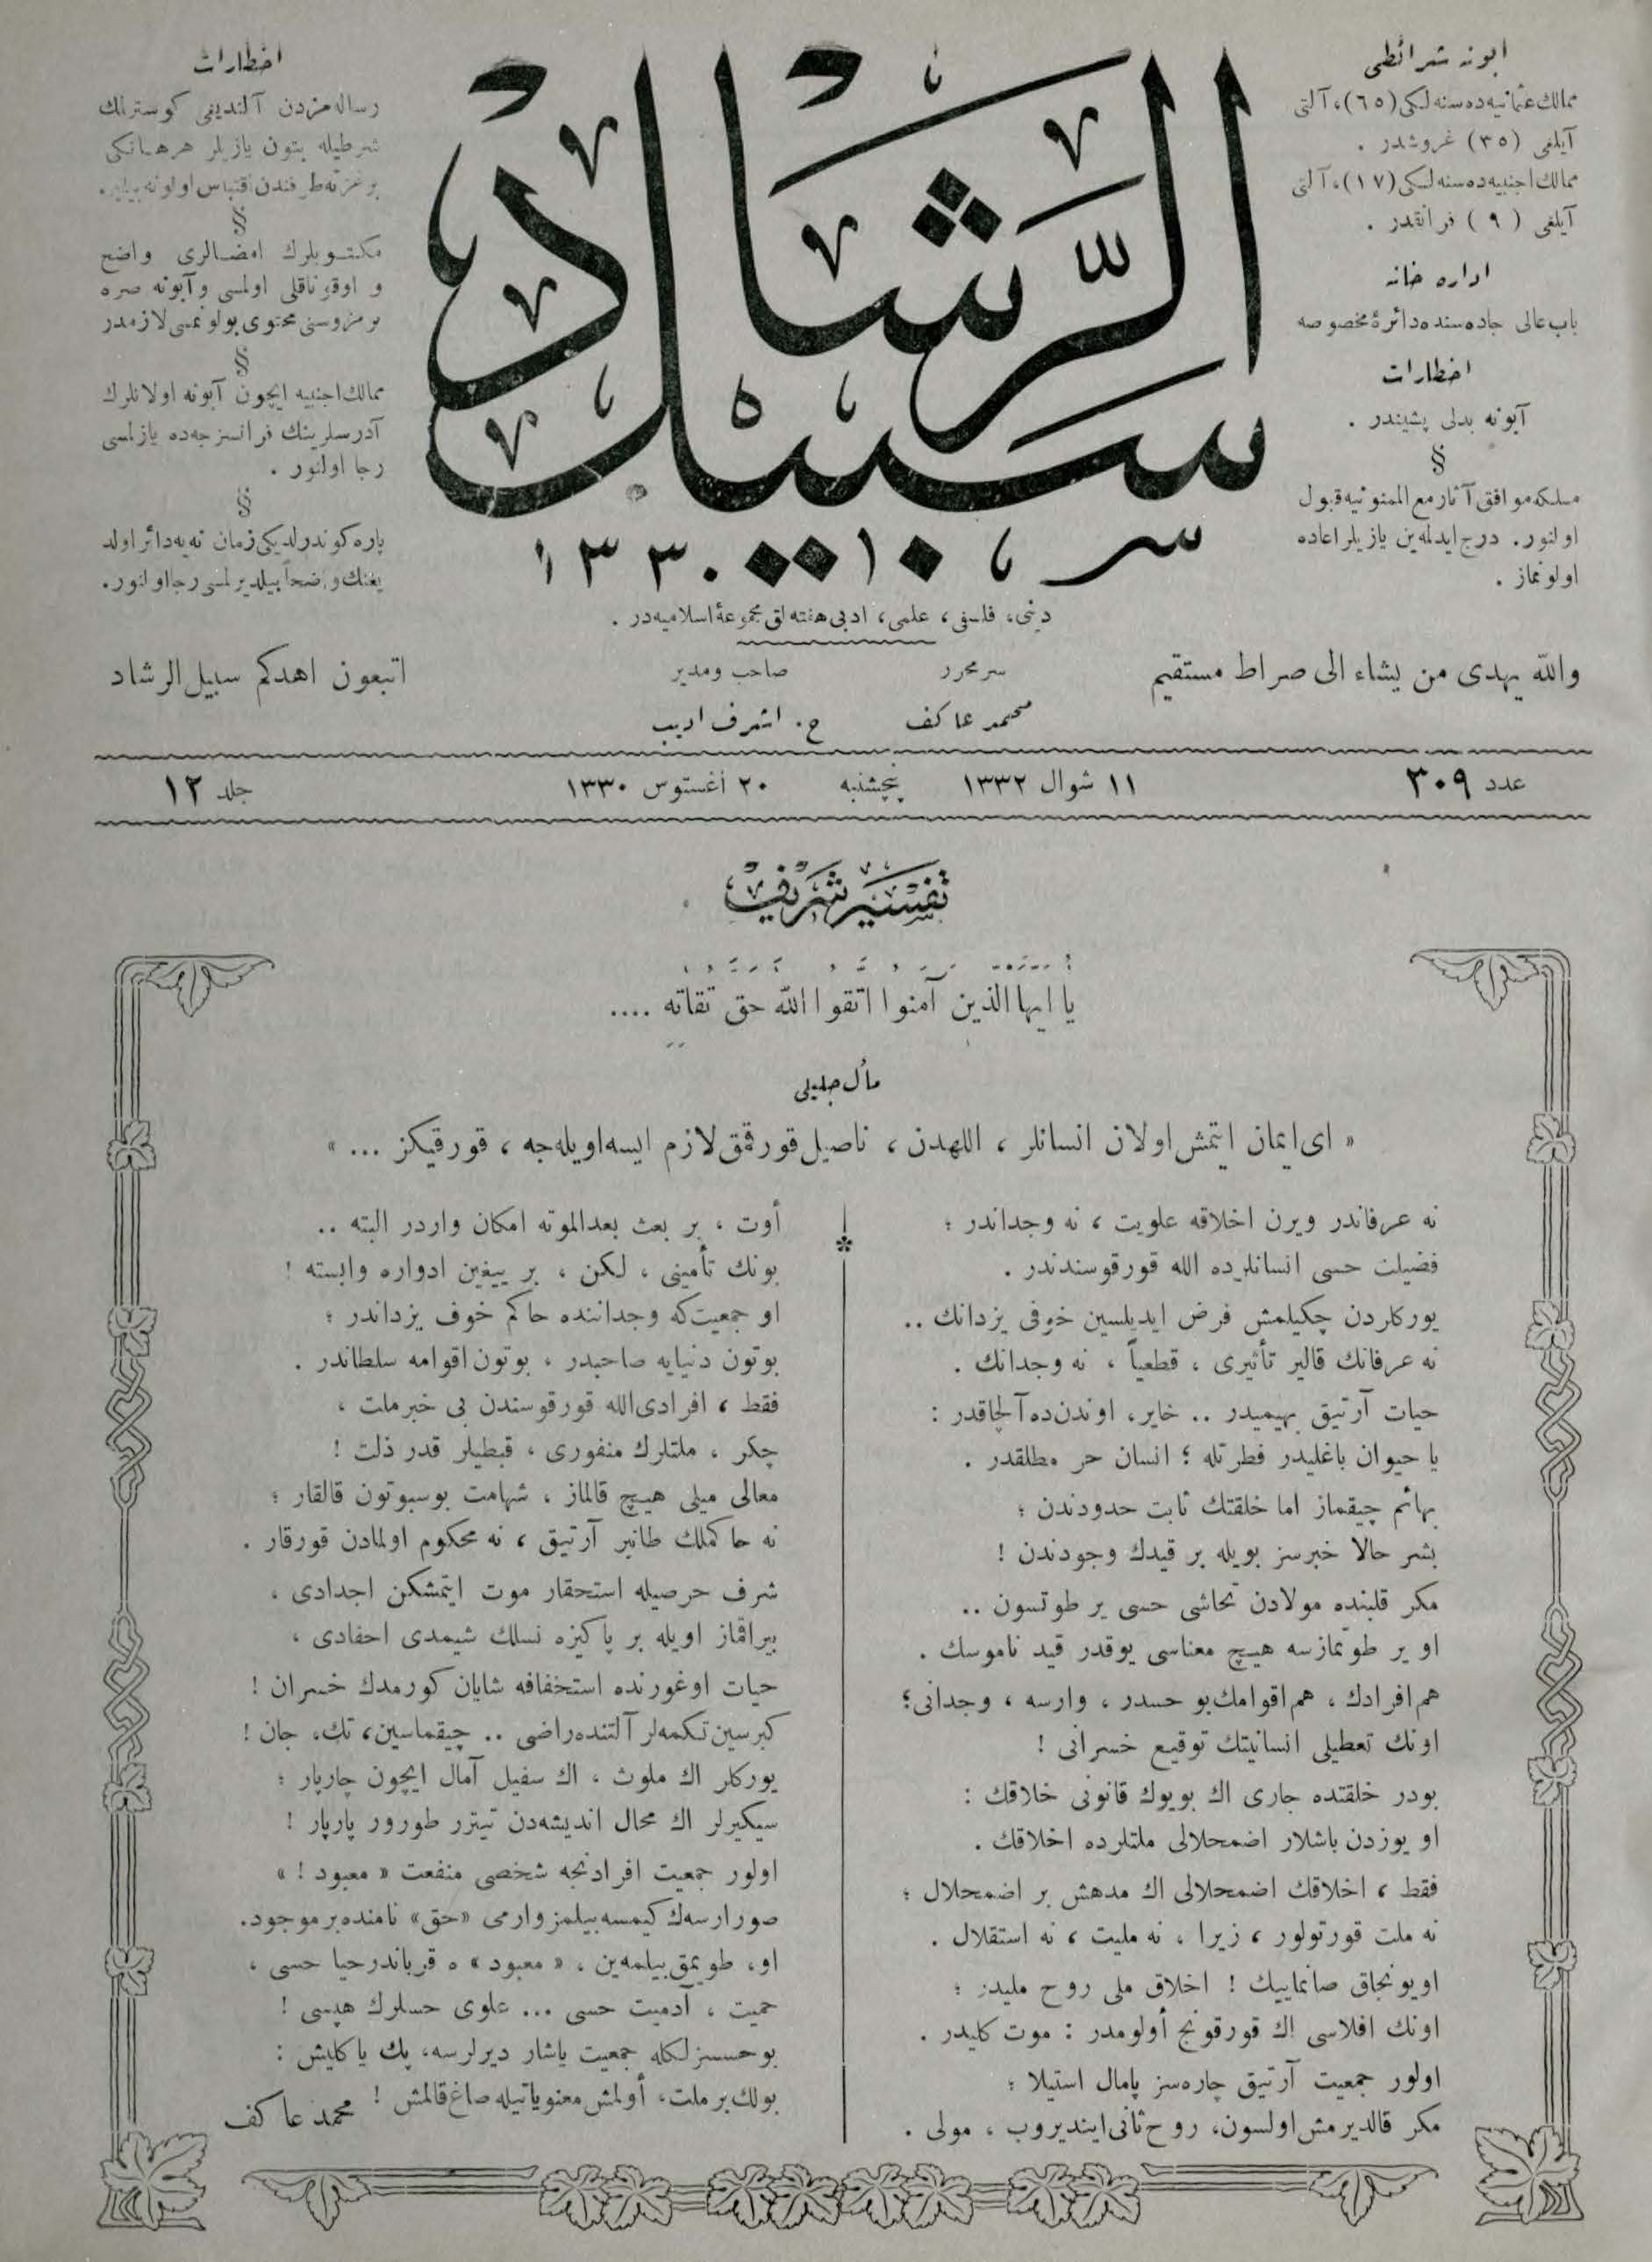 ابونه شرائطی
ممالك عثمانیه‌ده سنه‌لكی (٦٥)، آلتی
آیلغی (٣٥) غروشدر .
ممالك اجنبیه‌ده سنه‌لكی (١٧)، آلتی
آیلغی ( ٩ ) فرانقدر .
اداره خانه
باب عالی جاده‌سنده دائرۀ مخصوصه
اخطارات
آبونه بدلی پشیندر .
§
مسلكه موافق آثار مع الممنونیه قبول
اولنور. درج ایدلمه‌ین یازیلر اعاده
اولونماز .
سبیل الرشاد
١٣٣٠
اخطارات
رساله‌مزدن آلندیغی كوسترلمك
شرطیله بتون یازیلر هرهانكی
بر غزته طرفندن اقتباس اولونه بیلیر.
§
مكتوبلرك امضالری واضح
و اوقوناقلی اولمسی وآبونه صره
نومروسنی محتوی بولونمسی لازمدر
§
ممالك اجنبیه ایچون آبونه اولانلرك
آدرسلرینك فرانسزجه‌ده یازلمسی
رجا اولنور .
§
پاره كوندرلدیكی زمان نه‌یه دائر اولد
یغنك واضحاً بیلدیرلمسی رجا اولنور.
دینی، فلسفی، علمی، ادبی هفته‌لق مجموعۀ اسلامیه‌در .
والله یهدی من یشاء الی صراط مستقیم
سرمحرر
محمد عاكف
صاحب ومدیر
ح. اشرف ادیب
اتبعون اهدكم سبیل الرشاد
عدد ٣٠٩
١١ شوال ١٣٣٢
پنچشنبه
٢٠ اغستوس ١٣٣٠
جلد ١٢
تفسیر شریف
یا ایها الذین آمنوا اتقوا الله حق تقاته ....
مآل جلیلی
« ای ایمان ایتمش اولان انسانلر ، اللهدن ، ناصیل قورقمق لازم ایسه اویله‌جه ، قورقیكز ... »
نه عرفاندر ویرن اخلاقه علویت ، نه وجداندر ؛
فضیلت حسی انسانلرده الله قورقوسندندر .
یوركلردن چكیلمش فرض ایدیلسین خوفی یزدانك ..
نه عرفانك قالیر تأثیری ، قطعیاً ، نه وجدانك .
حیات آرتیق بهیمیدر .. خایر، اوندن‌ده آلچاقدر :
یا حیوان باغلیدر فطرتله ؛ انسان حر مطلقدر .
بهائم چیقماز اما خلقتك ثابت حدودندن ؛
بشر حالا خبرسز بویله بر قیدك وجودندن !
مكر قلبنده مولادن تحاشی حسی یر طوتسون ..
او یر طوتمازسه هیچ معناسی یوقدر قید ناموسك .
هم افرادك ، هم اقوامك بو حسدر ، وارسه ، وجدانی ؛
اونك تعطیلی انسانیتك توقیع خسرانی !
بودر خلقتده جاری اك بویوك قانونی خلاقك :
او یوزدن باشلار اضمحلالی ملتلرده اخلاقك .
فقط ، اخلاقك اضمحلالی اك مدهش بر اضمحلال ؛
نه ملت قورتولور ، زیرا ، نه ملیت ، نه استقلال .
اویونجاق صانماییك ! اخلاق ملی روح ملیدر ؛
اونك افلاسی اك قورقونج أولومدر : موت كلیدر .
اولور جمعیت آرتیق چاره‌سز پامال استیلا ؛
مكر قالدیرمش اولسون، روح ثانی ایندیروب ، مولی .
أوت ، بر بعث بعدالموته امكان واردر البته ..
بونك تأمینی ، لكن ، بر ییغین ادواره وابسته !
او جمعیت كه وجداننده حاكم خوف یزداندر ؛
بوتون دنیایه صاحبدر ، بوتون اقوامه سلطاندر .
فقط ، افرادی الله قورقوسندن بی خبر ملت ،
چكر ، ملتلرك منفوری ، قبطیلر قدر ذلت !
معالی میلی هیچ قالماز ، شهامت بوسبوتون قالقار ؛
نه حاكملك طانیر آرتیق ، نه محكوم اولمادن قورقار .
شرف حرصیله استحقار موت ایتمشكن اجدادی ،
بیراقماز اویله بر پاكیزه نسلك شیمدی احفادی ،
حیات اوغورنده استخفافه شایان كورمدك خسران !
كبرسین تكمه‌لر آلتنده راضی .. چیقماسین، تك، جان !
یوركلر اك ملوث ، اك سفیل آمال ایچون چارپار ؛
سیكیرلر اك محال اندیشه‌دن تیترر طورور پارپار !
اولور جمعیت افرادنجه شخصی منفعت « معبود ! »
صورارسه‌ك كیمسه بیلمز وارمی «حق» نامنده بر موجود.
او، طویمق بیلمه‌ین ، « معبود » ه قرباندر حیا حسی ،
حمیت ، آدمیت حسی ... علوی حسلرك هپسی !
بوحسسزلكله جمعیت یاشار دیرلرسه، پك یاكلیش :
بولك بر ملت، أولمش معنویاتیله صاغ قالمش !
محمد عاكف